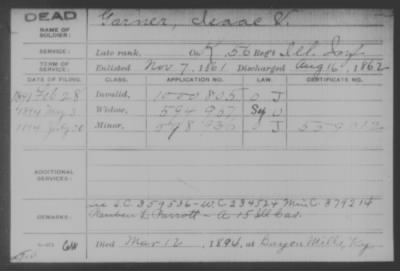 DEAD
NAME OF SOLDIER: Garner, Isaac V.
SERVICE: Late rank, Co K, 56 Reg't Ill. Inf.
TERM OF SERVICE: Enlisted Nov 7, 1861, Discharged Aug 16, 1862
DATE OF FILING. CLASS. APPLICATION NO. LAW. CERTIFICATE NO.
1891 Feb 28 Invalid, 1000805 O J
1894 May 3 Widow, 594937 O
1894 July 30 Minor, 598930 O J
ADDITIONAL SERVICES:
REMARKS: in S.C. 359536 - W.C. 234524 Min C. 379214
Reuben L. Parrott - A 15 Ill Cav.
Died Mar 12, 1894, at Bayou Mills, Ky